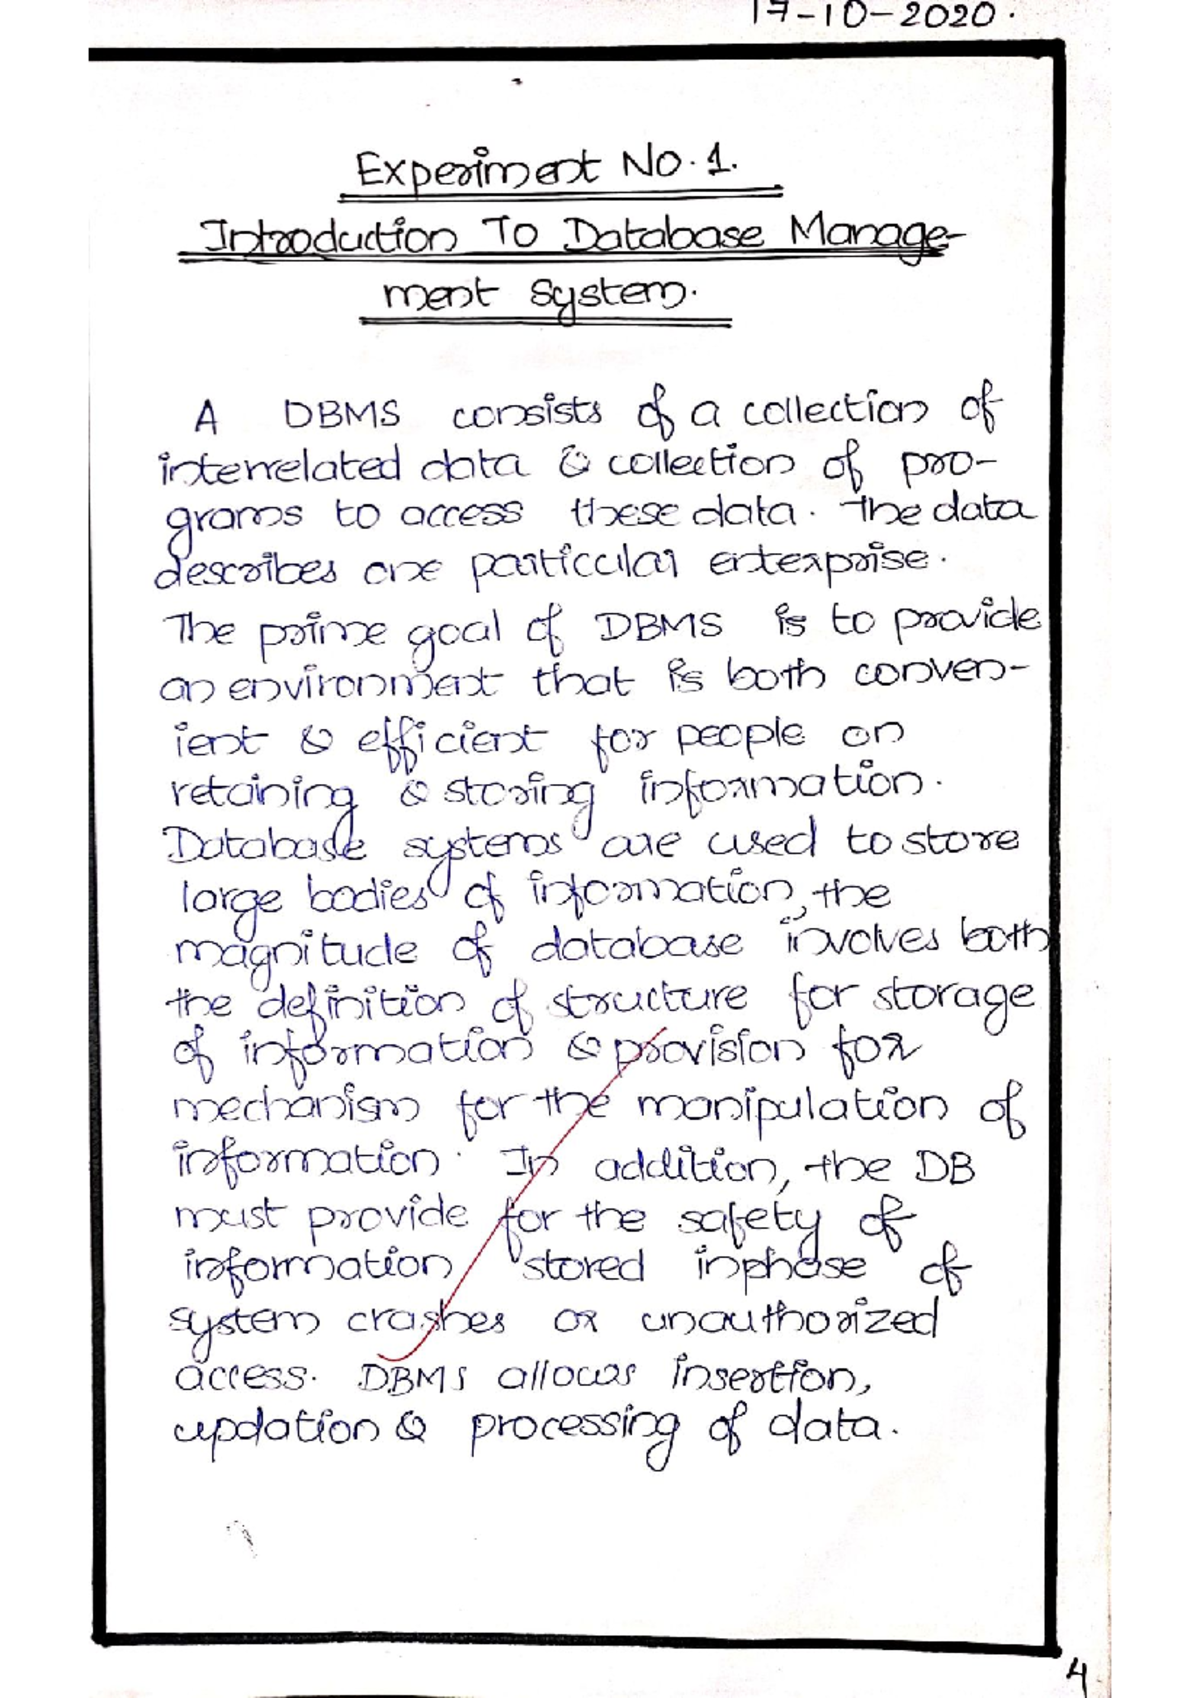 17-10-2020.
Experiment No. 1.
Introduction To Database Manage-
ment System.
A DBMS consists of a collection of
interrelated data & collection of pro-
grams to access these data. The data
describes one particular enterprise.
The prime goal of DBMS is to provide
an environment that is both conven-
ient & efficient for people on
retaining & storing information.
Database systems are used to store
large bodies of information, the
magnitude of database involves both
the definition of structure for storage
of information & provision for
mechanism for the manipulation of
information. In addition, the DB
must provide for the safety of
information stored inphase of
system crashes or unauthorized
access. DBMS allows insertion,
updation & processing of data.
4